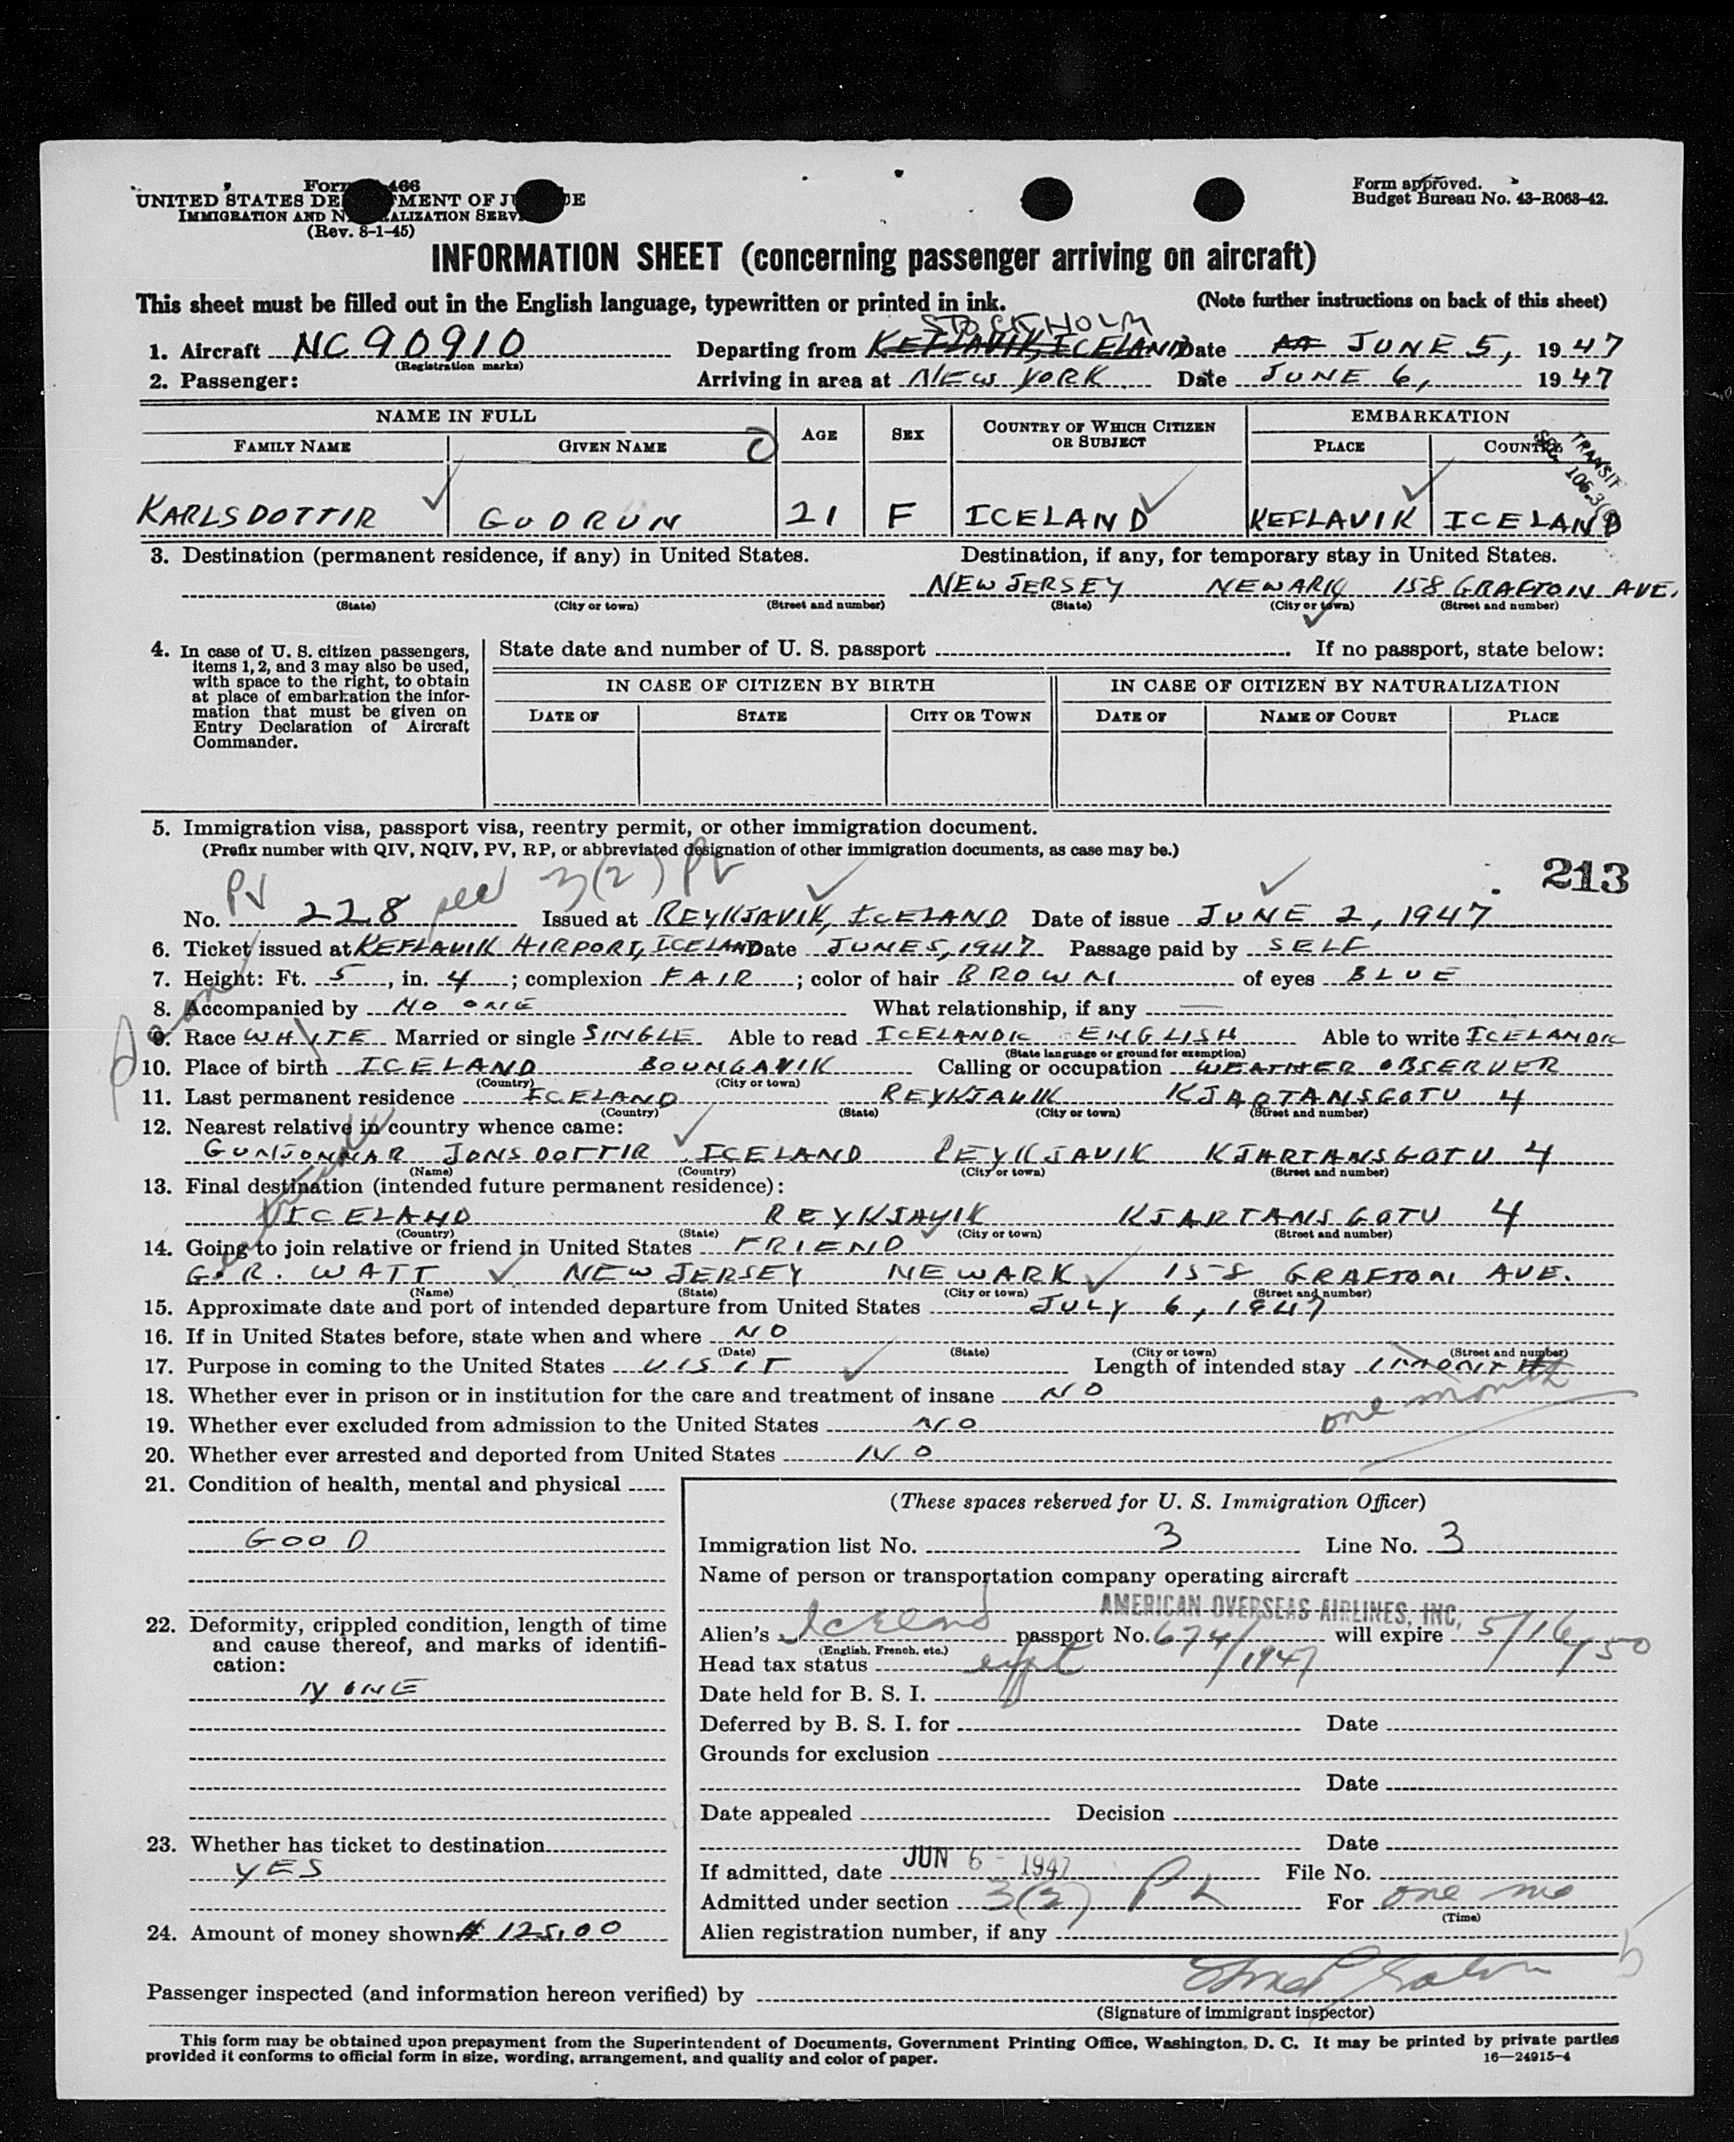 Form 466
UNITED STATES DE MENT OF J E
IMMIGRATION AND N ALIZATION SERV
(Rev. 8-1-45)
Form approved.
Budget Bureau No. 43-R068-42.
INFORMATION SHEET (concerning passenger arriving on aircraft)
This sheet must be filled out in the English language, typewritten or printed in ink. (Note further instructions on back of this sheet)
STOCKHOLM
1. Aircraft NC90910 Departing from KEFLAVIK, ICELAND Date JUNE 5, 1947
(Registration marks)
2. Passenger: Arriving in area at NEW YORK Date JUNE 6, 1947
NAME IN FULL AGE SEX COUNTRY OF WHICH CITIZEN OR SUBJECT EMBARKATION
FAMILY NAME GIVEN NAME PLACE COUNTRY
TRANSIT
KARLSDOTTIR GUDRUN 21 F ICELAND KEFLAVIK ICELAND
3. Destination (permanent residence, if any) in United States. Destination, if any, for temporary stay in United States.
NEW JERSEY NEWARK 158 GRAFTON AVE.
(State) (City or town) (Street and number) (State) (City or town) (Street and number)
4. In case of U. S. citizen passengers, items 1, 2, and 3 may also be used, with space to the right, to obtain at place of embarkation the information that must be given on Entry Declaration of Aircraft Commander.
State date and number of U. S. passport If no passport, state below:
IN CASE OF CITIZEN BY BIRTH IN CASE OF CITIZEN BY NATURALIZATION
DATE OF STATE CITY OR TOWN DATE OF NAME OF COURT PLACE
5. Immigration visa, passport visa, reentry permit, or other immigration document.
(Prefix number with QIV, NQIV, PV, RP, or abbreviated designation of other immigration documents, as case may be.)
PV 3(2) PV 213
No. 228 Issued at REYKJAVIK, ICELAND Date of issue JUNE 2, 1947
6. Ticket issued at KEFLAVIK AIRPORT, ICELAND Date JUNE 5, 1947 Passage paid by SELF
7. Height: Ft. 5, in. 4; complexion FAIR; color of hair BROWN of eyes BLUE
8. Accompanied by NO ONE What relationship, if any —
9. Race WHITE Married or single SINGLE Able to read ICELANDIC ENGLISH Able to write ICELANDIC
(State language or ground for exemption)
10. Place of birth ICELAND BOUNGAVIK Calling or occupation WEATHER OBSERVER
(Country) (City or town)
11. Last permanent residence ICELAND REYKJAVIK KJARTANSGOTU 4
(Country) (State) (City or town) (Street and number)
12. Nearest relative in country whence came:
GUNJONNAR JONSDOTTIR ICELAND REYKJAVIK KJARTANSGOTU 4
(Name) (Country) (City or town) (Street and number)
13. Final destination (intended future permanent residence):
ICELAND REYKJAVIK KJARTANSGOTU 4
(Country) (State) (City or town) (Street and number)
14. Going to join relative or friend in United States FRIEND
G. R. WATT NEW JERSEY NEWARK 158 GRAFTON AVE.
(Name) (State) (City or town) (Street and number)
15. Approximate date and port of intended departure from United States JULY 6, 1947
16. If in United States before, state when and where NO
(Date) (State) (City or town) (Street and number)
17. Purpose in coming to the United States VISIT Length of intended stay 1 MONTH
one month
18. Whether ever in prison or in institution for the care and treatment of insane NO
19. Whether ever excluded from admission to the United States NO
20. Whether ever arrested and deported from United States NO
21. Condition of health, mental and physical
GOOD
22. Deformity, crippled condition, length of time and cause thereof, and marks of identification:
NONE
23. Whether has ticket to destination
YES
24. Amount of money shown $125.00
(These spaces reserved for U. S. Immigration Officer)
Immigration list No. 3 Line No. 3
Name of person or transportation company operating aircraft
AMERICAN OVERSEAS AIRLINES, INC.
Alien's Iceland passport No. 674/1947 will expire 5/16/50
(English, French, etc.)
Head tax status
Date held for B. S. I.
Deferred by B. S. I. for Date
Grounds for exclusion
Date
Date appealed Decision
Date
If admitted, date JUN 6 - 1947 File No.
Admitted under section 3(2) For one mo
(Time)
Alien registration number, if any
Passenger inspected (and information hereon verified) by
(Signature of immigrant inspector)
This form may be obtained upon prepayment from the Superintendent of Documents, Government Printing Office, Washington, D. C. It may be printed by private parties
provided it conforms to official form in size, wording, arrangement, and quality and color of paper. 16—24915-4